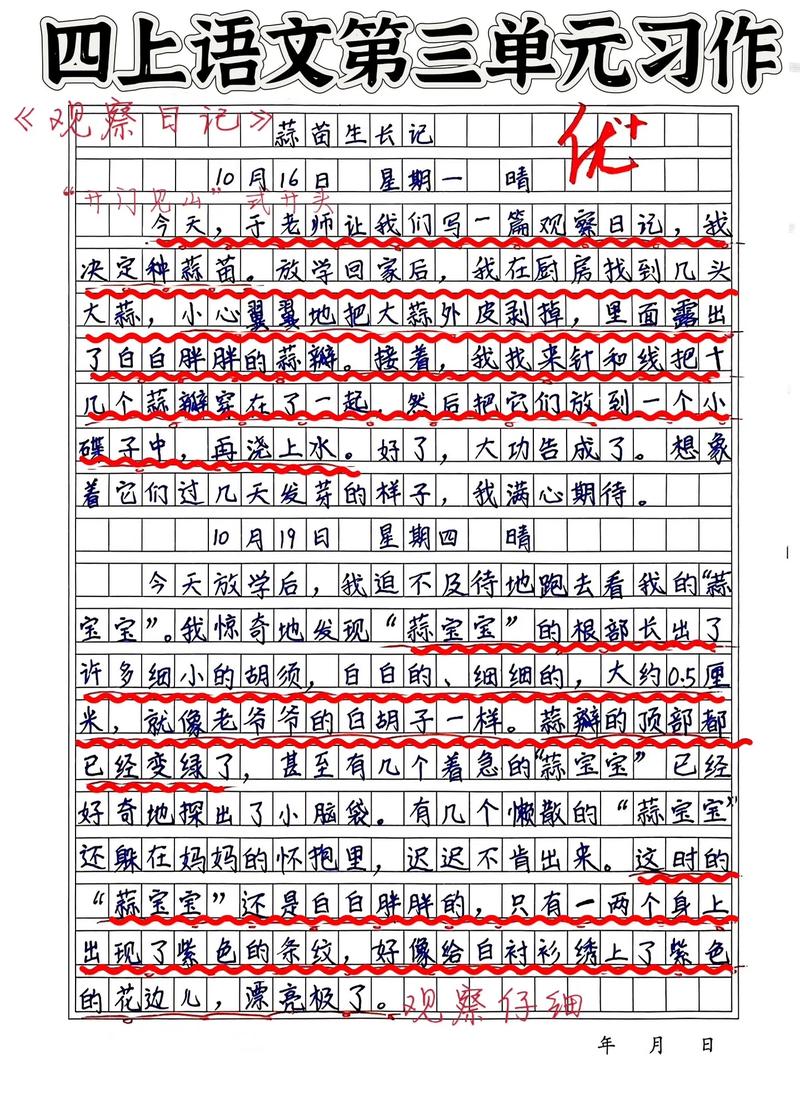 四上语文第三单元习作
《观察日记》
蒜苗生长记
优+
10月16日 星期一 晴
“开门见山”式开头
今天，于老师让我们写一篇观察日记，我
决定种蒜苗。放学回家后，我在厨房找到几头
大蒜，小心翼翼地把大蒜外皮剥掉，里面露出
了白白胖胖的蒜瓣。接着，我找来针和线把十
几个蒜瓣穿在了一起，然后把它们放到一个小
碟子中，再浇上水。好了，大功告成了。想象
着它们过几天发芽的样子，我满心期待。
10月19日 星期四 晴
今天放学后，我迫不及待地跑去看我的“蒜
宝宝”。我惊奇地发现“蒜宝宝”的根部长出了
许多细小的胡须，白白的、细细的，大约0.5厘
米，就像老爷爷的白胡子一样。蒜瓣的顶部都
已经变绿了，甚至有几个着急的“蒜宝宝”已经
好奇地探出了小脑袋。有几个懒散的“蒜宝宝”
还躲在妈妈的怀抱里，迟迟不肯出来。这时的
“蒜宝宝”还是白白胖胖的，只有一两个身上
出现了紫色的条纹，好像给白衬衫绣上了紫色
的花边儿，漂亮极了。观察仔细
年 月 日